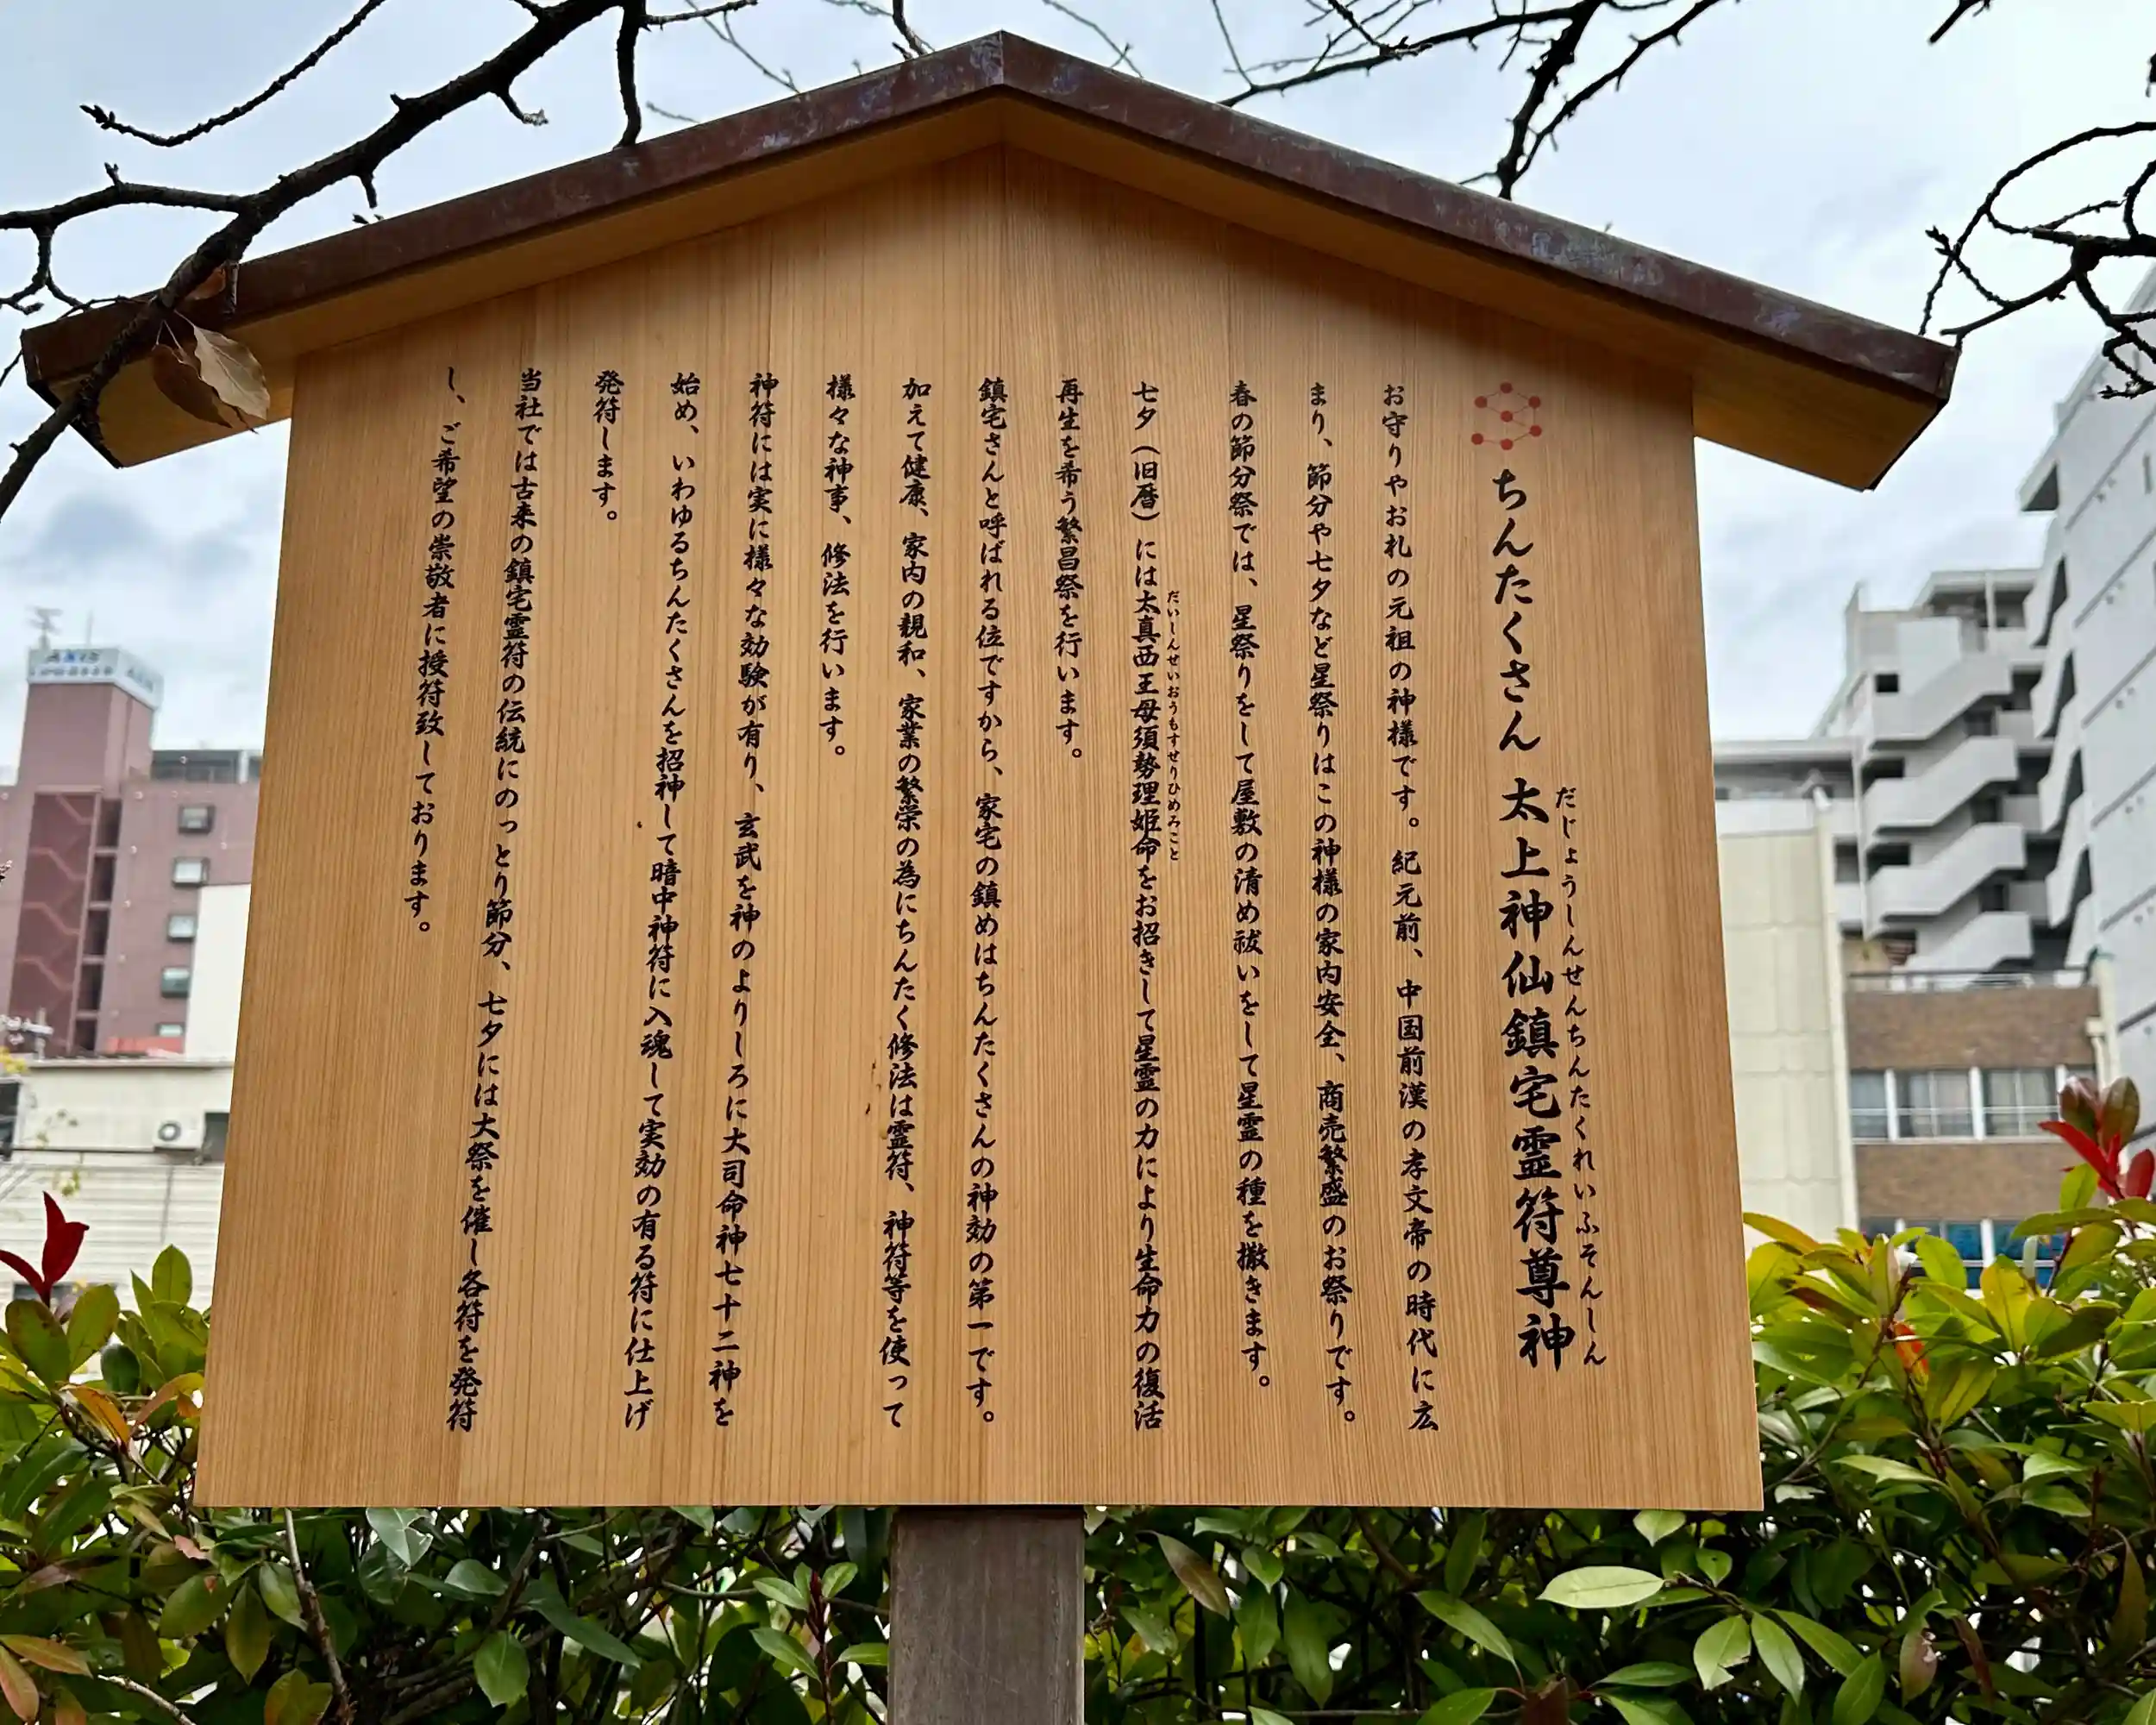 ちんたくさん 太上神仙鎮宅霊符尊神
だじょうしんせんちんたくれいふそんしん
お守りやお札の元祖の神様です。紀元前、中国前漢の孝文帝の時代に広
まり、節分や七夕など星祭りはこの神様の家内安全、商売繁盛のお祭りです。
春の節分祭では、星祭りをして屋敷の清め祓いをして星霊の種を撒きます。
七夕（旧暦）には太真西王母須勢理姫命をお招きして星霊の力により生命力の復活
だいしんせいおうもすせりひめみこと
再生を希う繁昌祭を行います。
鎮宅さんと呼ばれる位ですから、家宅の鎮めはちんたくさんの神効の第一です。
加えて健康、家内の親和、家業の繁栄の為にちんたく修法は霊符、神符等を使って
様々な神事、修法を行います。
神符には実に様々な効験が有り、玄武を神のよりしろに大司命神七十二神を
始め、いわゆるちんたくさんを招神して暗中神符に入魂して実効の有る符に仕上げ
発符します。
当社では古来の鎮宅霊符の伝統にのっとり節分、七夕には大祭を催し各符を発符
し、ご希望の崇敬者に授符致しております。